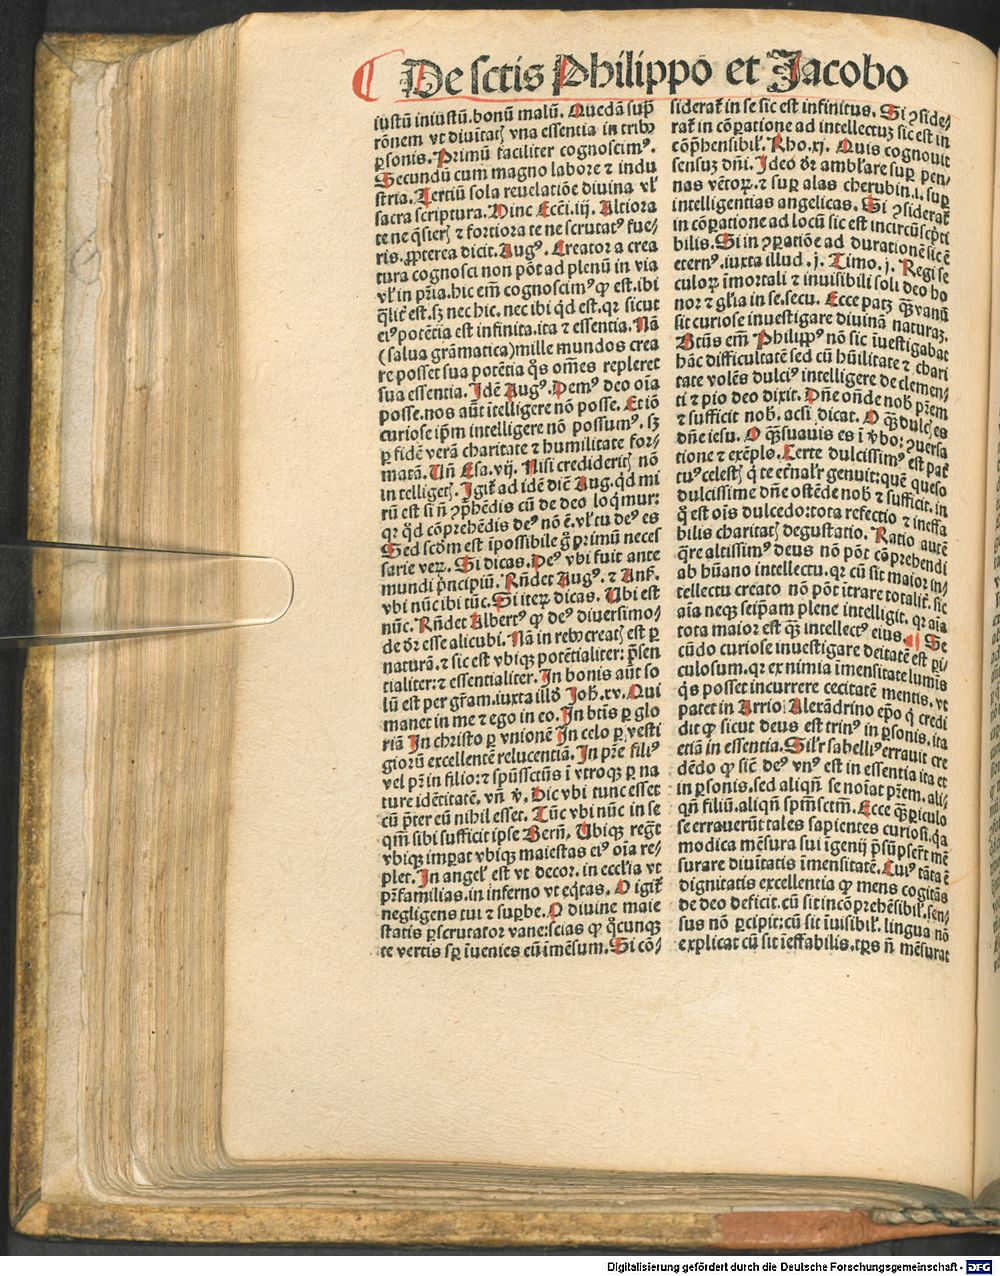 De sctis Philippo et Jacobo
iustũ iniustũ. bonũ malũ. Quedã suꝑ
rõnem vt diuĩtatꝭ vna essentia in tribꝰ
ꝑsonis. Primũ faciliter cognoscimꝰ.
Secundũ cum magno labore ⁊ indu
stria. Tertiũ sola reuelatiõe diuina vľ
sacra scriptura. Hinc Ecci. iij. Altiora
te ne q̃sierꝭ ⁊ fortiora te ne scrutatꝰ fue⸗
ris. ꝓpterea dicit. Augꝰ. Creator a crea
tura cognosci non põt ad plenũ in via
vľ in pr̃ia. hic em̃ cognoscimꝰ ꝙ est. ibi
q̃lit̃ est. sꝫ nec hic. nec ibi qͥd est. qꝛ sicut
eiꝰ potẽtia est infinita. ita ⁊ essentia. Nã
(salua grãmatica) mille mundos crea
re posset sua potẽtia q̊s om̃es repleret
sua essentia. Idẽ Augꝰ. Demꝰ deo oĩa
posse. nos aũt ĩtelligere nõ posse. Et iõ
curiose ip̃m intelligere nõ possumꝰ. sꝫ
ꝑ fidẽ verã charitate ⁊ humilitate for⸗
matã. Vñ Esa. vij. Nisi credideritꝭ nõ
intelligetꝭ. Igit̃ ad idẽ diẽ Aug. qͥd mi
rũ est si ñ ꝯp̃hẽdis cũ de deo loq̃mur:
qꝛ qͥd cõprehẽdis deꝰ nõ ẽ. vľ tu deꝰ es
Sed scd̃m est ĩpossibile g̊ primũ neces
sarie veꝝ. Si dicas. Deꝰ vbi fuit ante
mundi pͥncipiũ. Rñdet Augꝰ. ⁊ Anẜ.
vbi nũc ibi tũc. Si iteꝝ dicas. Vbi est
nũc. Rñdet Albertꝰ ꝙ deꝰ diuersimo⸗
de dr̃ esse alicubi. Nã in rebꝰ creatꝭ est ꝑ
naturã. ⁊ sic est vbiqꝫ potẽtialiter: p̃sen
tialiter: ⁊ essentialiter. In bonis aũt so
lũ est per gr̃am. iuxta illđ Joħ. xv. Qui
manet in me ⁊ ego in eo. In bt̃is ꝑ glo
riã In christo ꝑ vnionẽ In celo ꝑ vesti
gioꝝ excellentẽ relucentiã. In pr̃e filiꝰ
vel pr̃ in filio: ⁊ sp̃ũssctũs ĩ vtroqꝫ ꝑ na
ture idẽtitatẽ. vñ ꝟ. Hic vbi tunc esset
cũ p̃ter eũ nihil esset. Tũc vbi nũc in se
qm̃ sibi sufficit ipse Berñ. Vbiqꝫ regͣt
vbiqꝫ imꝑat vbiqꝫ maiestas eiꝰ oĩa re⸗
plet. In angeľ est vt decor. in ecclĩa vt
pr̃familias. in inferno vt eq̃tas. O igit̃
negligens tui ⁊ suꝑbe. O diuine maie
statis ꝑscrutator vane: scias ꝙ q̊cunqꝫ
te vertis sꝑ ĩuenies eũ ĩmẽsum. Si cõ⸗
siderat̃ in se sic est infinitus. Si ꝯside⸗
rat̃ in cõꝑatione ad intellectuꝫ sic est in
cõp̃hensibiľ. Rho. xj. Quis cognouit
sensuꝫ dñi. Ideo dr̃ ambľare suꝑ pen⸗
nas vẽtoꝝ. ⁊ suꝑ alas cherubin. i. suꝑ
intelligentias angelicas. Si ꝯsiderat̃
in cõꝑatione ad locũ sic est incircũscpͥti
bilis. Si in ꝯꝑatiõe ad durationẽ sic ẽ
eternꝰ. iuxta illud. j. Timo. j. Regi se
culoꝝ ĩmortali ⁊ inuisibili soli deo ho
nor ⁊ gľia in se. secu. Ecce patꝫ q̃ꝫ vanũ
sit curiose inuestigare diuinã naturaꝫ.
Btũs em̃ Philippꝰ nõ sic ĩuestigabat
hãc difficultatẽ sed cũ hũilitate ⁊ chari
tate volẽs dulciꝰ intelligere de clemen⸗
ti ⁊ pio deo dixit. Dñe oñde nob pr̃em
⁊ sufficit nob. acsi dicat. O q̃ꝫ dulcꝭ es
dñe iesu. O q̃ꝫ suauis es ĩ ꝟbo: ꝯuersa
tione ⁊ exẽplo. Certe dulcissimꝰ est pat̃
tuꝰ celestꝭ qͥ te et̃naľr genuit: quẽ queso
dulcissime dñe ostẽde nob ⁊ sufficit. in
q̊ est oĩs dulcedo: tota refectio ⁊ ineffa
bilis charitatꝭ degustatio. Ratio autẽ
q̃re altissimꝰ deus nõ põt cõprehendi
ab hũano intellectu. qꝛ cũ sit maior in⸗
tellectu creato nõ põt ĩtrare totaliť. sic
aĩa neqꝫ seip̃am plene intelligit. qꝛ aĩa
tota maior est q̃ꝫ intellectꝰ eius. ¶ Se
cũdo curiose inuestigare deitatẽ est ꝑi⸗
culosum. qꝛ ex nimia ĩmensitate lumĩs
q̊s posset incurrere cecitatẽ mentis. vt
patet in Arrio Alexãdrino ep̃o qͥ credi
dit ꝙ sicut deus est trinꝰ in ꝑsonis. ita
etiã in essentia. Siľr sabelliꝰ errauit cre
dẽdo ꝙ sic̃ deꝰ vnꝰ est in essentia ita et
in ꝑsonis. sed aliqñ se noĩat pr̃em. ali⸗
qñ filiũ. aliqñ sp̃m sctm̃. Ecce q̃ꝫ ꝑiculo
se errauerũt tales sapientes curiosi. qͥa
modica mẽsura sui ĩgenij p̃sũpsert̃ mẽ
surare diuĩtatis ĩmensitatẽ. Cuiꝰ tãta ẽ
dignitatis excellentia ꝙ mens cogitãs
de deo deficit. cũ sit incõprehẽsibiľ. sen⸗
sus nõ ꝑcipit: cũ sit ĩuisibiľ. lingua nõ
explicat cũ sit ĩeffabilis. tꝑs ñ mẽsurat
Digitalisierung gefördert durch die Deutsche Forschungsgemeinschaft - DFG